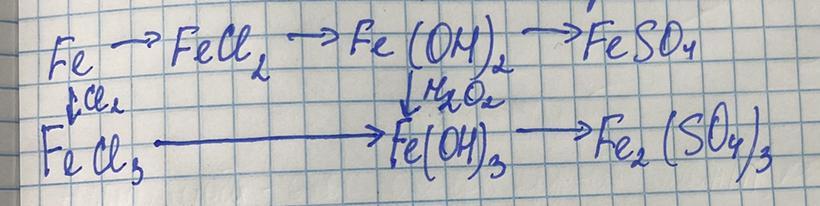 Fe → FeCl₂ → Fe(OH)₂ → FeSO₄
↓Cl₂ ↓H₂O₂
FeCl₃ → Fe(OH)₃ → Fe₂(SO₄)₃